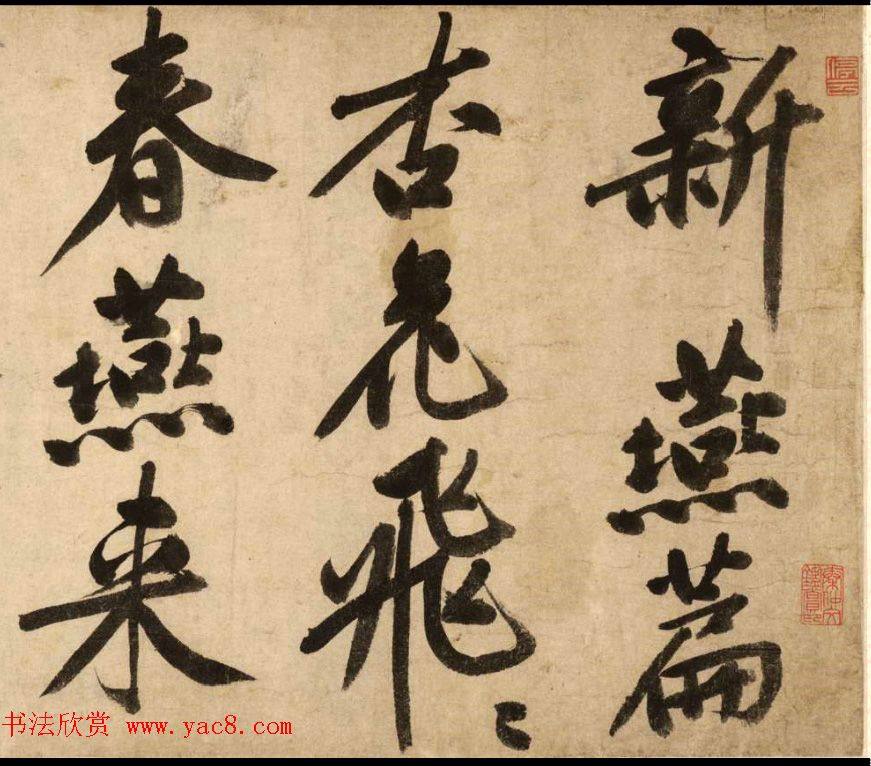 新燕篇
杏花飛〻
春燕来
书法欣赏 www.yac8.com